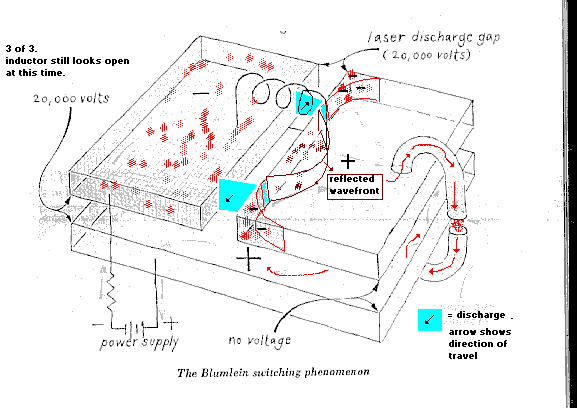 3 of 3.
inductor still looks open
at this time.
laser discharge gap
(20,000 volts)
20,000 volts
−
−
−
+
reflected
wavefront
−
−
+
− +
power supply
no voltage
= discharge .
arrow shows
direction of
travel
The Blumlein switching phenomenon